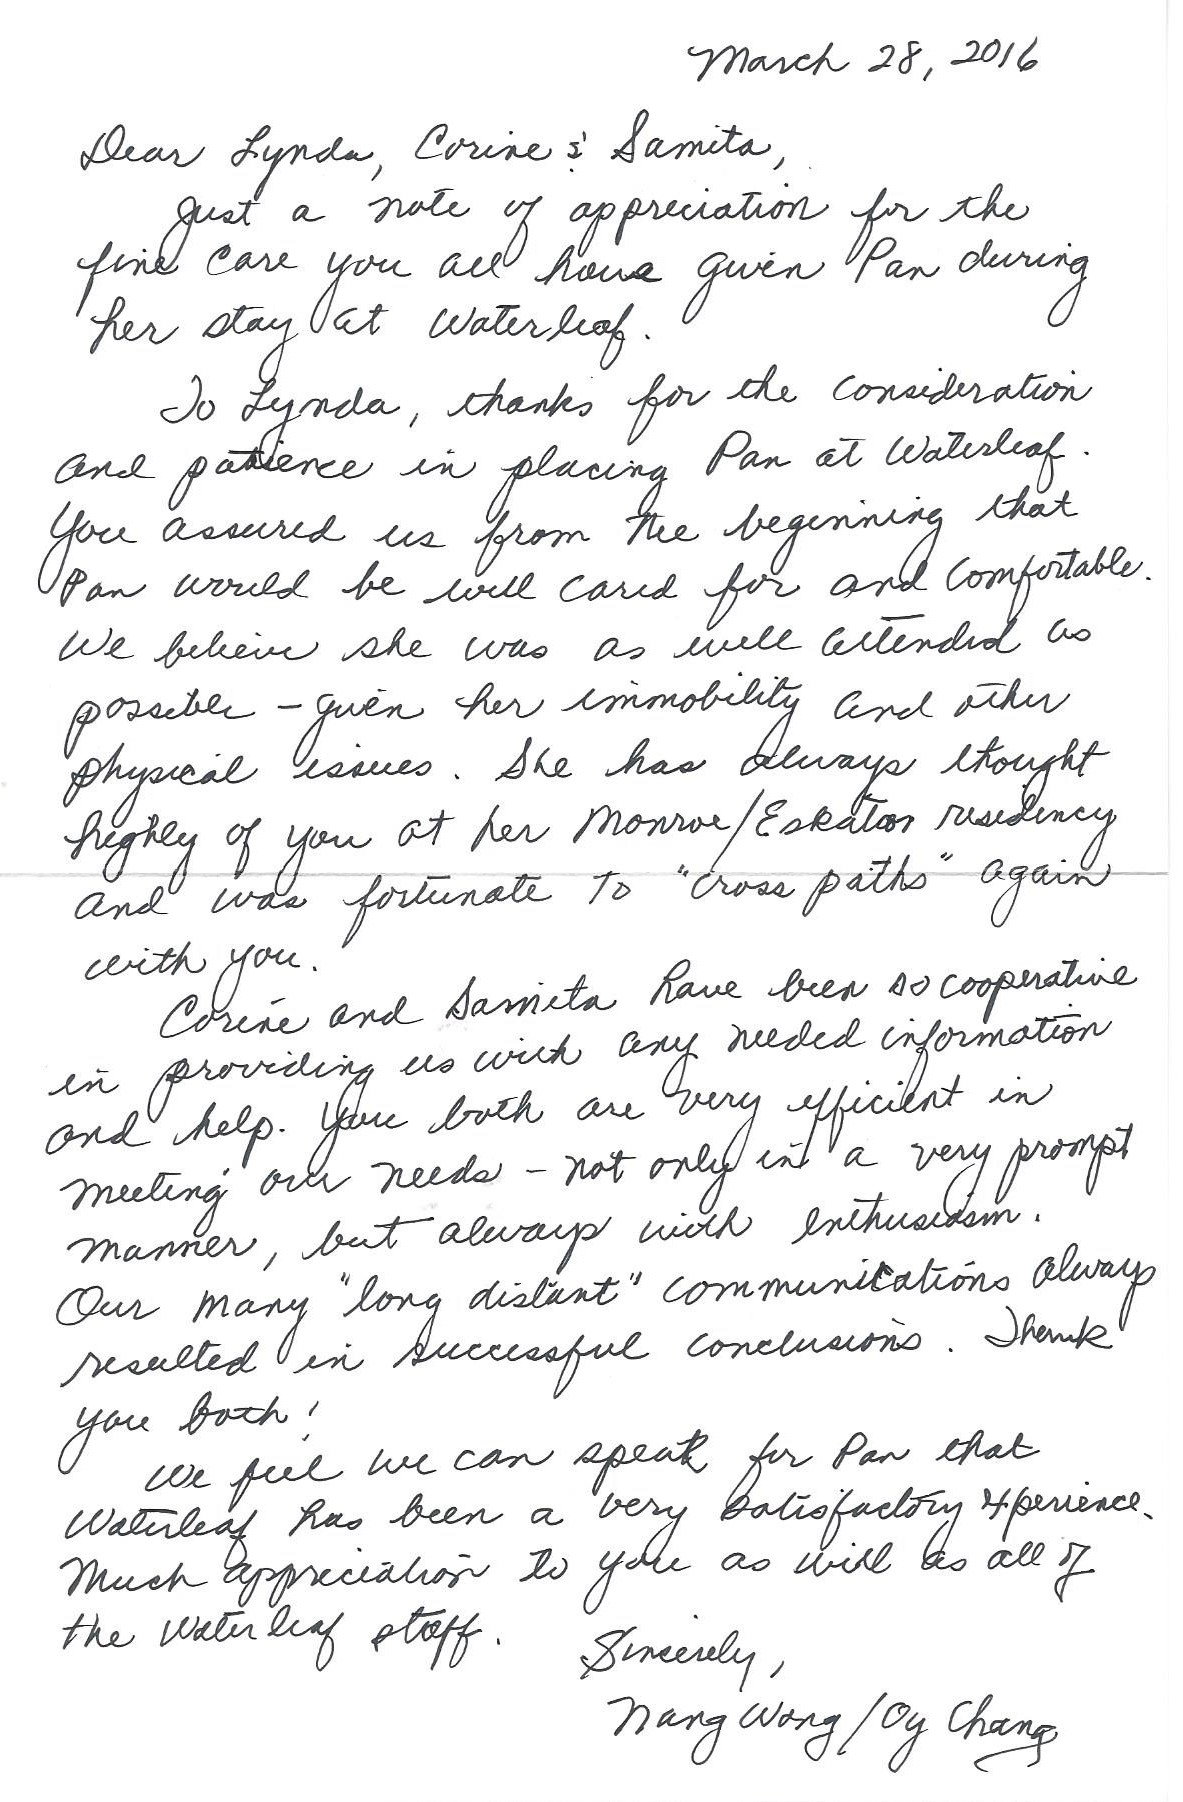 March 28, 2016
Dear Lynda, Corine & Samita,
Just a note of appreciation for the
fine care you all have given Pan during
her stay at Waterleaf.
To Lynda, thanks for the consideration
and patience in placing Pan at Waterleaf.
You assured us from the beginning that
Pan would be well cared for and comfortable.
We believe she was as well attended as
possible – given her immobility and other
physical issues. She has always thought
highly of you at her Monroe/Eskaton residency
and was fortunate to "cross paths" again
with you.
Corine and Samita have been so cooperative
in providing us with any needed information
and help. You both are very efficient in
meeting our needs – not only in a very prompt
manner, but always with enthusiasm.
Our many "long distant" communications always
resulted in successful conclusions. Thank
you both!
We feel we can speak for Pan that
Waterleaf has been a very satisfactory experience.
Much appreciation to you as well as all of
the Waterleaf staff.
Sincerely,
Nang Wong/Oy Chang